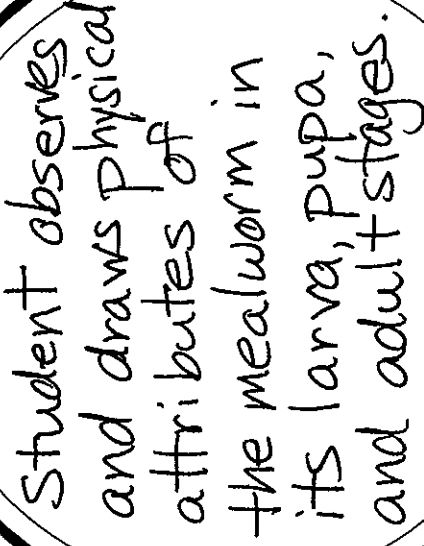 Student observes
and draws physical
attributes of
the mealworm in
its larva, pupa,
and adult stages.